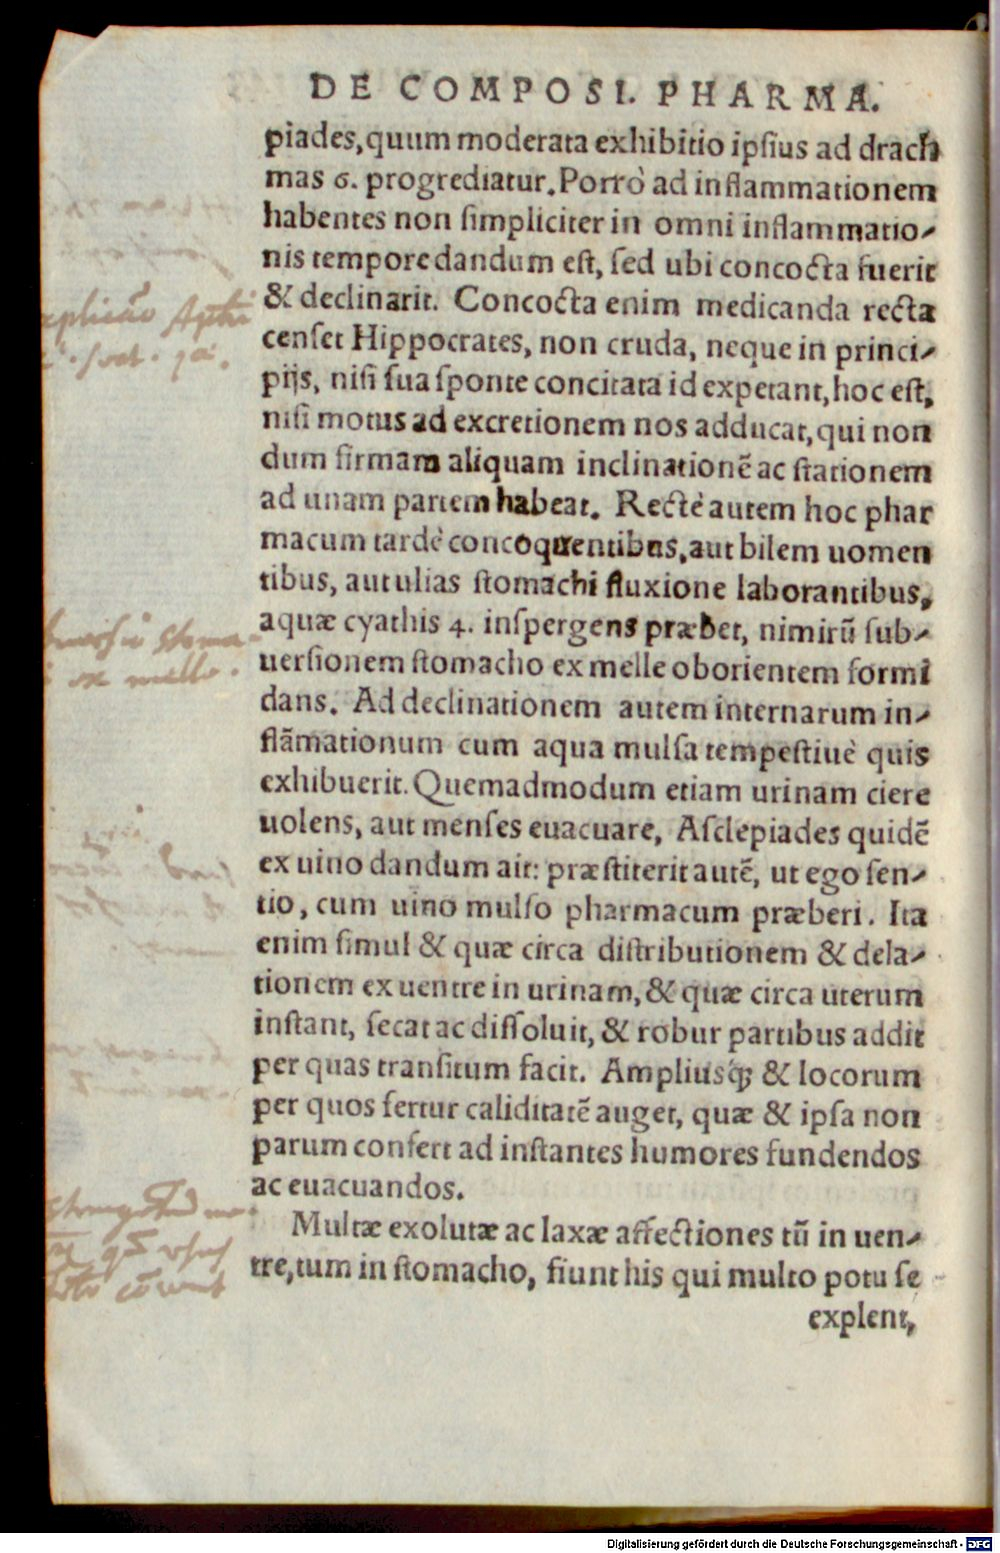 DE COMPOSI. PHARMA.
piades, quum moderata exhibitio ipſius ad drach
mas 6. progrediatur. Porrò ad inflammationem
habentes non ſimpliciter in omni inflammatio-
nis tempore dandum eſt, ſed ubi concocta fuerit
& declinarit. Concocta enim medicanda recta
cenſet Hippocrates, non cruda, neque in princi-
pijs, niſi ſua ſponte concitata id expetant, hoc eſt,
niſi motus ad excretionem nos adducat, qui non
dum firmam aliquam inclinationẽ ac ſtationem
ad unam partem habeat. Rectè autem hoc phar
macum tardè concoquentibus, aut bilem uomen
tibus, aut ulias ſtomachi fluxione laborantibus,
aquæ cyathis 4. inſpergens præbet, nimirũ ſub-
uerſionem ſtomacho ex melle oborientem formi
dans. Ad declinationem autem internarum in-
flãmationum cum aqua mulſa tempeſtiuè quis
exhibuerit. Quemadmodum etiam urinam ciere
uolens, aut menſes euacuare, Aſclepiades quidẽ
ex uino dandum ait: præſtiterit autẽ, ut ego ſen-
tio, cum uino mulſo pharmacum præberi. Ita
enim ſimul & quæ circa diſtributionem & dela-
tionem ex uentre in urinam, & quæ circa uterum
inſtant, ſecat ac diſſoluit, & robur partibus addit
per quas tranſitum facit. Ampliusq́; & locorum
per quos fertur caliditatẽ auget, quæ & ipſa non
parum confert ad inſtantes humores fundendos
ac euacuandos.
Multæ exolutæ ac laxæ affectiones tũ in uen-
tre, tum in ſtomacho, fiunt his qui multo potu ſe
explent,
ex melle.
Digitalisierung gefördert durch die Deutsche Forschungsgemeinschaft - DFG